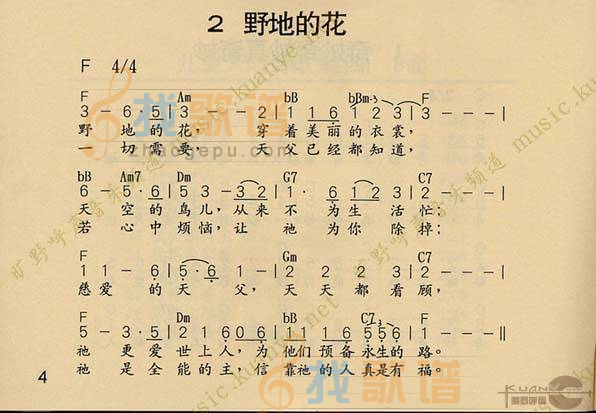 2 野地的花
F 4/4
F Am bB bBm-3 F
3 - 6· 5 | 3 - - 2 | 1 1 6 1 2 3 | 3 - - - |
野 地 的 花， 穿 着 美 丽 的 衣 裳，
一 切 需 要， 天 父 已 经 都 知 道，
bB Am7 Dm G7 C7
6 - 5· 6 | 5 3 - 3 2 | 1· 6 1 2 3 | 2 - - - |
天 空 的 鸟 儿，从 来 不 为 生 活 忙；
若 心 中 烦 恼，让 祂 为 你 除 掉；
F Gm C7
1 1 - 6 | 5· 6 5 - | 2 2 2 2 | 3 2 - - |
慈 爱 的 天 父， 天 天 都 看 顾，
F Dm bB C7-3 F
5 - 3· 3 | 2 1 6 0 6 | 1 1 6 5 5 6 | 1 - - - ‖
祂 更 爱 世 上 人，为 他们 预 备 永生的 路。
祂 是 全 能 的 主，信 靠祂 的 人 真是有 福。
4
找歌谱
zhaogepu.com
旷野呼声音乐频道 music.kuanye.net
找歌谱
KUANYE
旷野呼声